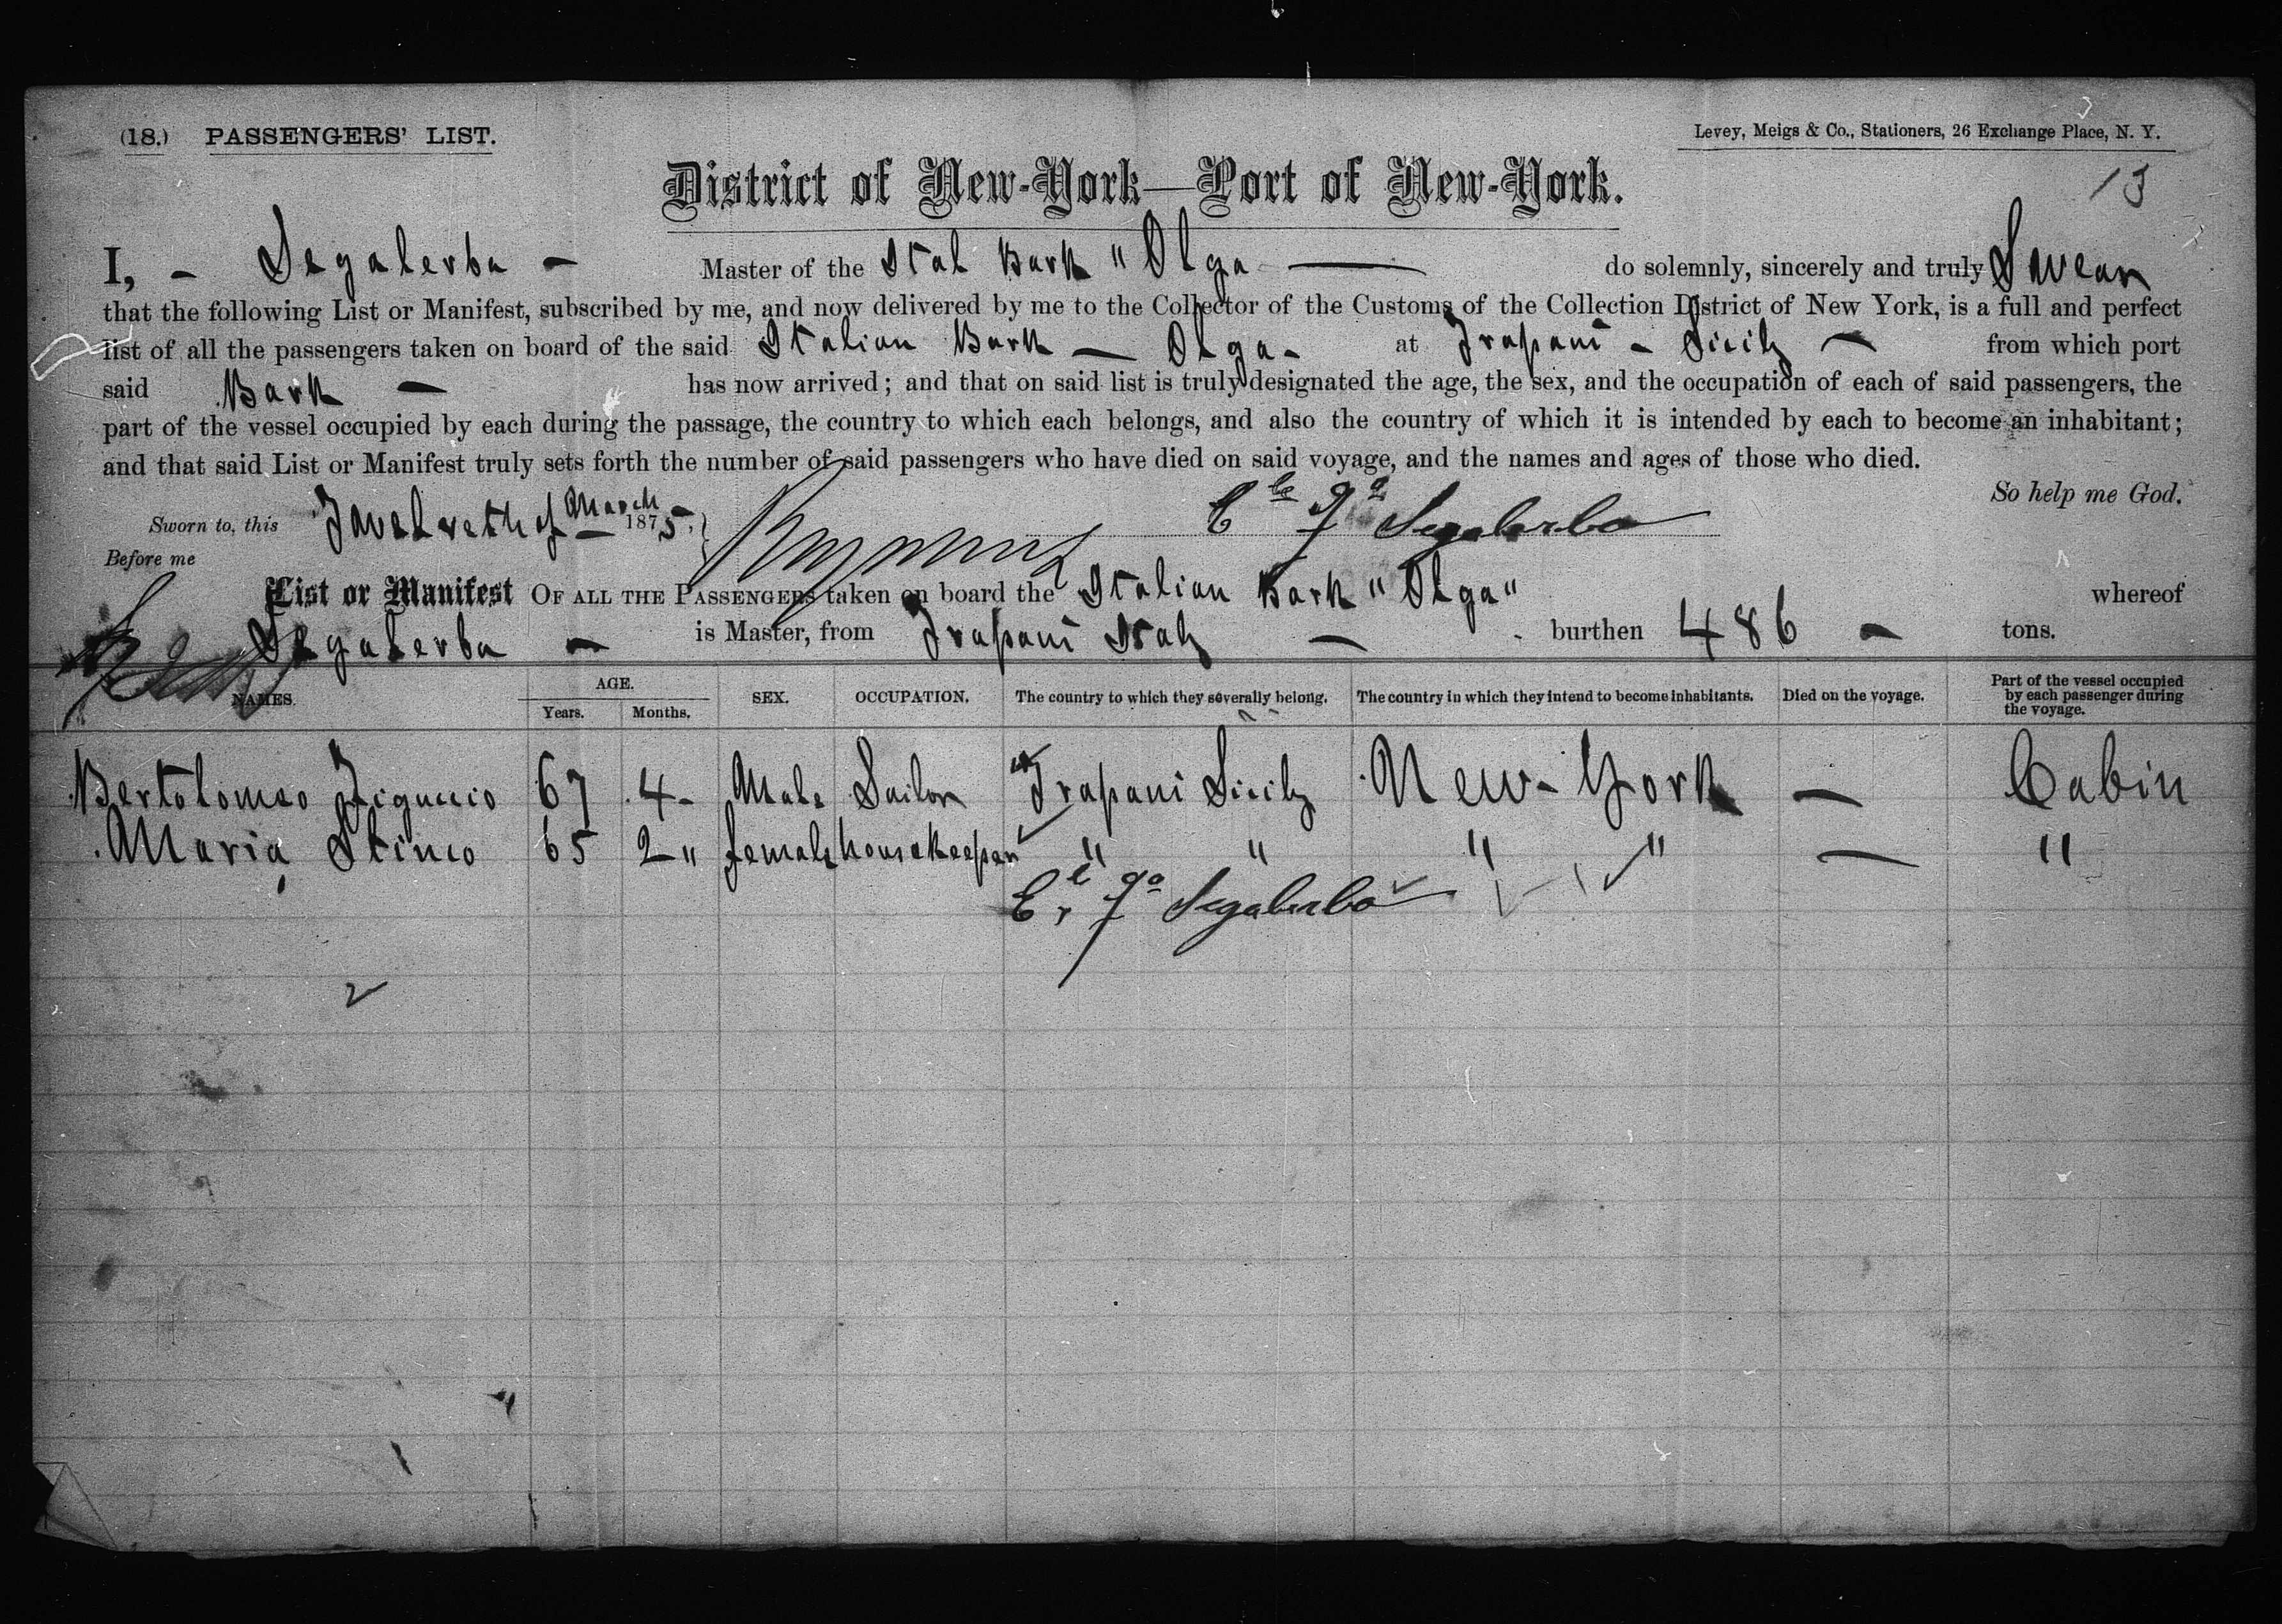 (18.) PASSENGERS' LIST.
Levey, Meigs & Co., Stationers, 26 Exchange Place, N. Y.
13
District of New-York—Port of New-York.
I, - Segalerba - Master of the Ital Bark "Olga — do solemnly, sincerely and truly Swear
that the following List or Manifest, subscribed by me, and now delivered by me to the Collector of the Customs of the Collection District of New York, is a full and perfect
list of all the passengers taken on board of the said Italian Bark — Olga - at Trapani - Sicily — from which port
said Bark — has now arrived; and that on said list is truly designated the age, the sex, and the occupation of each of said passengers, the
part of the vessel occupied by each during the passage, the country to which each belongs, and also the country of which it is intended by each to become an inhabitant;
and that said List or Manifest truly sets forth the number of said passengers who have died on said voyage, and the names and ages of those who died.
So help me God.
Sworn to, this Twelveth of March 1875. Segalerba
Before me
List or Manifest OF ALL THE PASSENGERS taken on board the Italian Bark "Olga" whereof
Segalerba — is Master, from Trapani Italy — burthen 486 — tons.
NAMES. AGE. Years. Months. SEX. OCCUPATION. The country to which they severally belong. The country in which they intend to become inhabitants. Died on the voyage. Part of the vessel occupied by each passenger during the voyage.
Bertolomeo 67 4 - Male Sailor Trapani Sicily New-York — Cabin
Maria Stinco 65 2 " female housekeeper " " " " — "
Segalerba
2